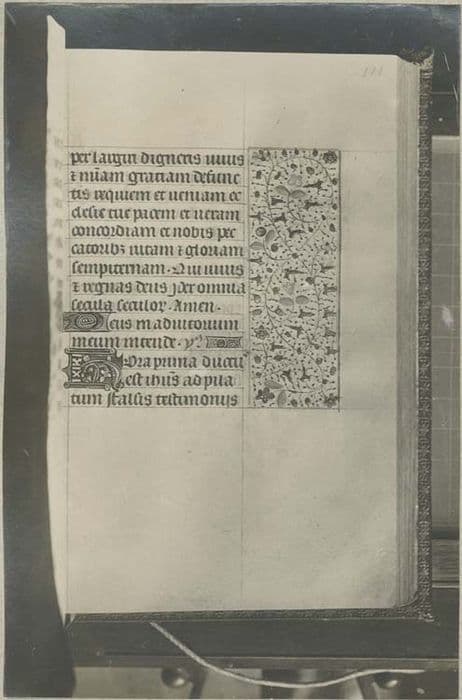 per largiri digneris uiuis
⁊ miãm gratiam defunc
tis requiem et ueniam ec
clesie tue pacem et ueram
concordiam et nobis pec
catoribꝫ uitam ⁊ gloriam
sempiternam. Qui uiuis
⁊ regnas deus per omnia
secula seculoꝝ. Amen.
Deus in adiutorium
meum intende.
Hora prima ductus
est ihũs ad pila
tum falsis testimonijs